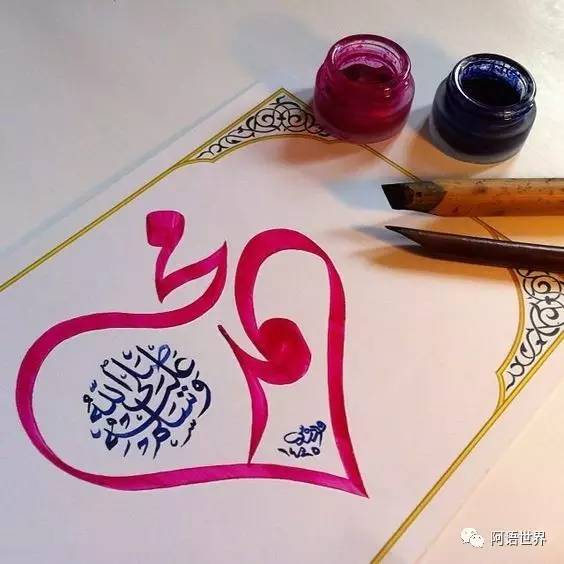 محمد
صلى الله عليه وسلم
阿语世界